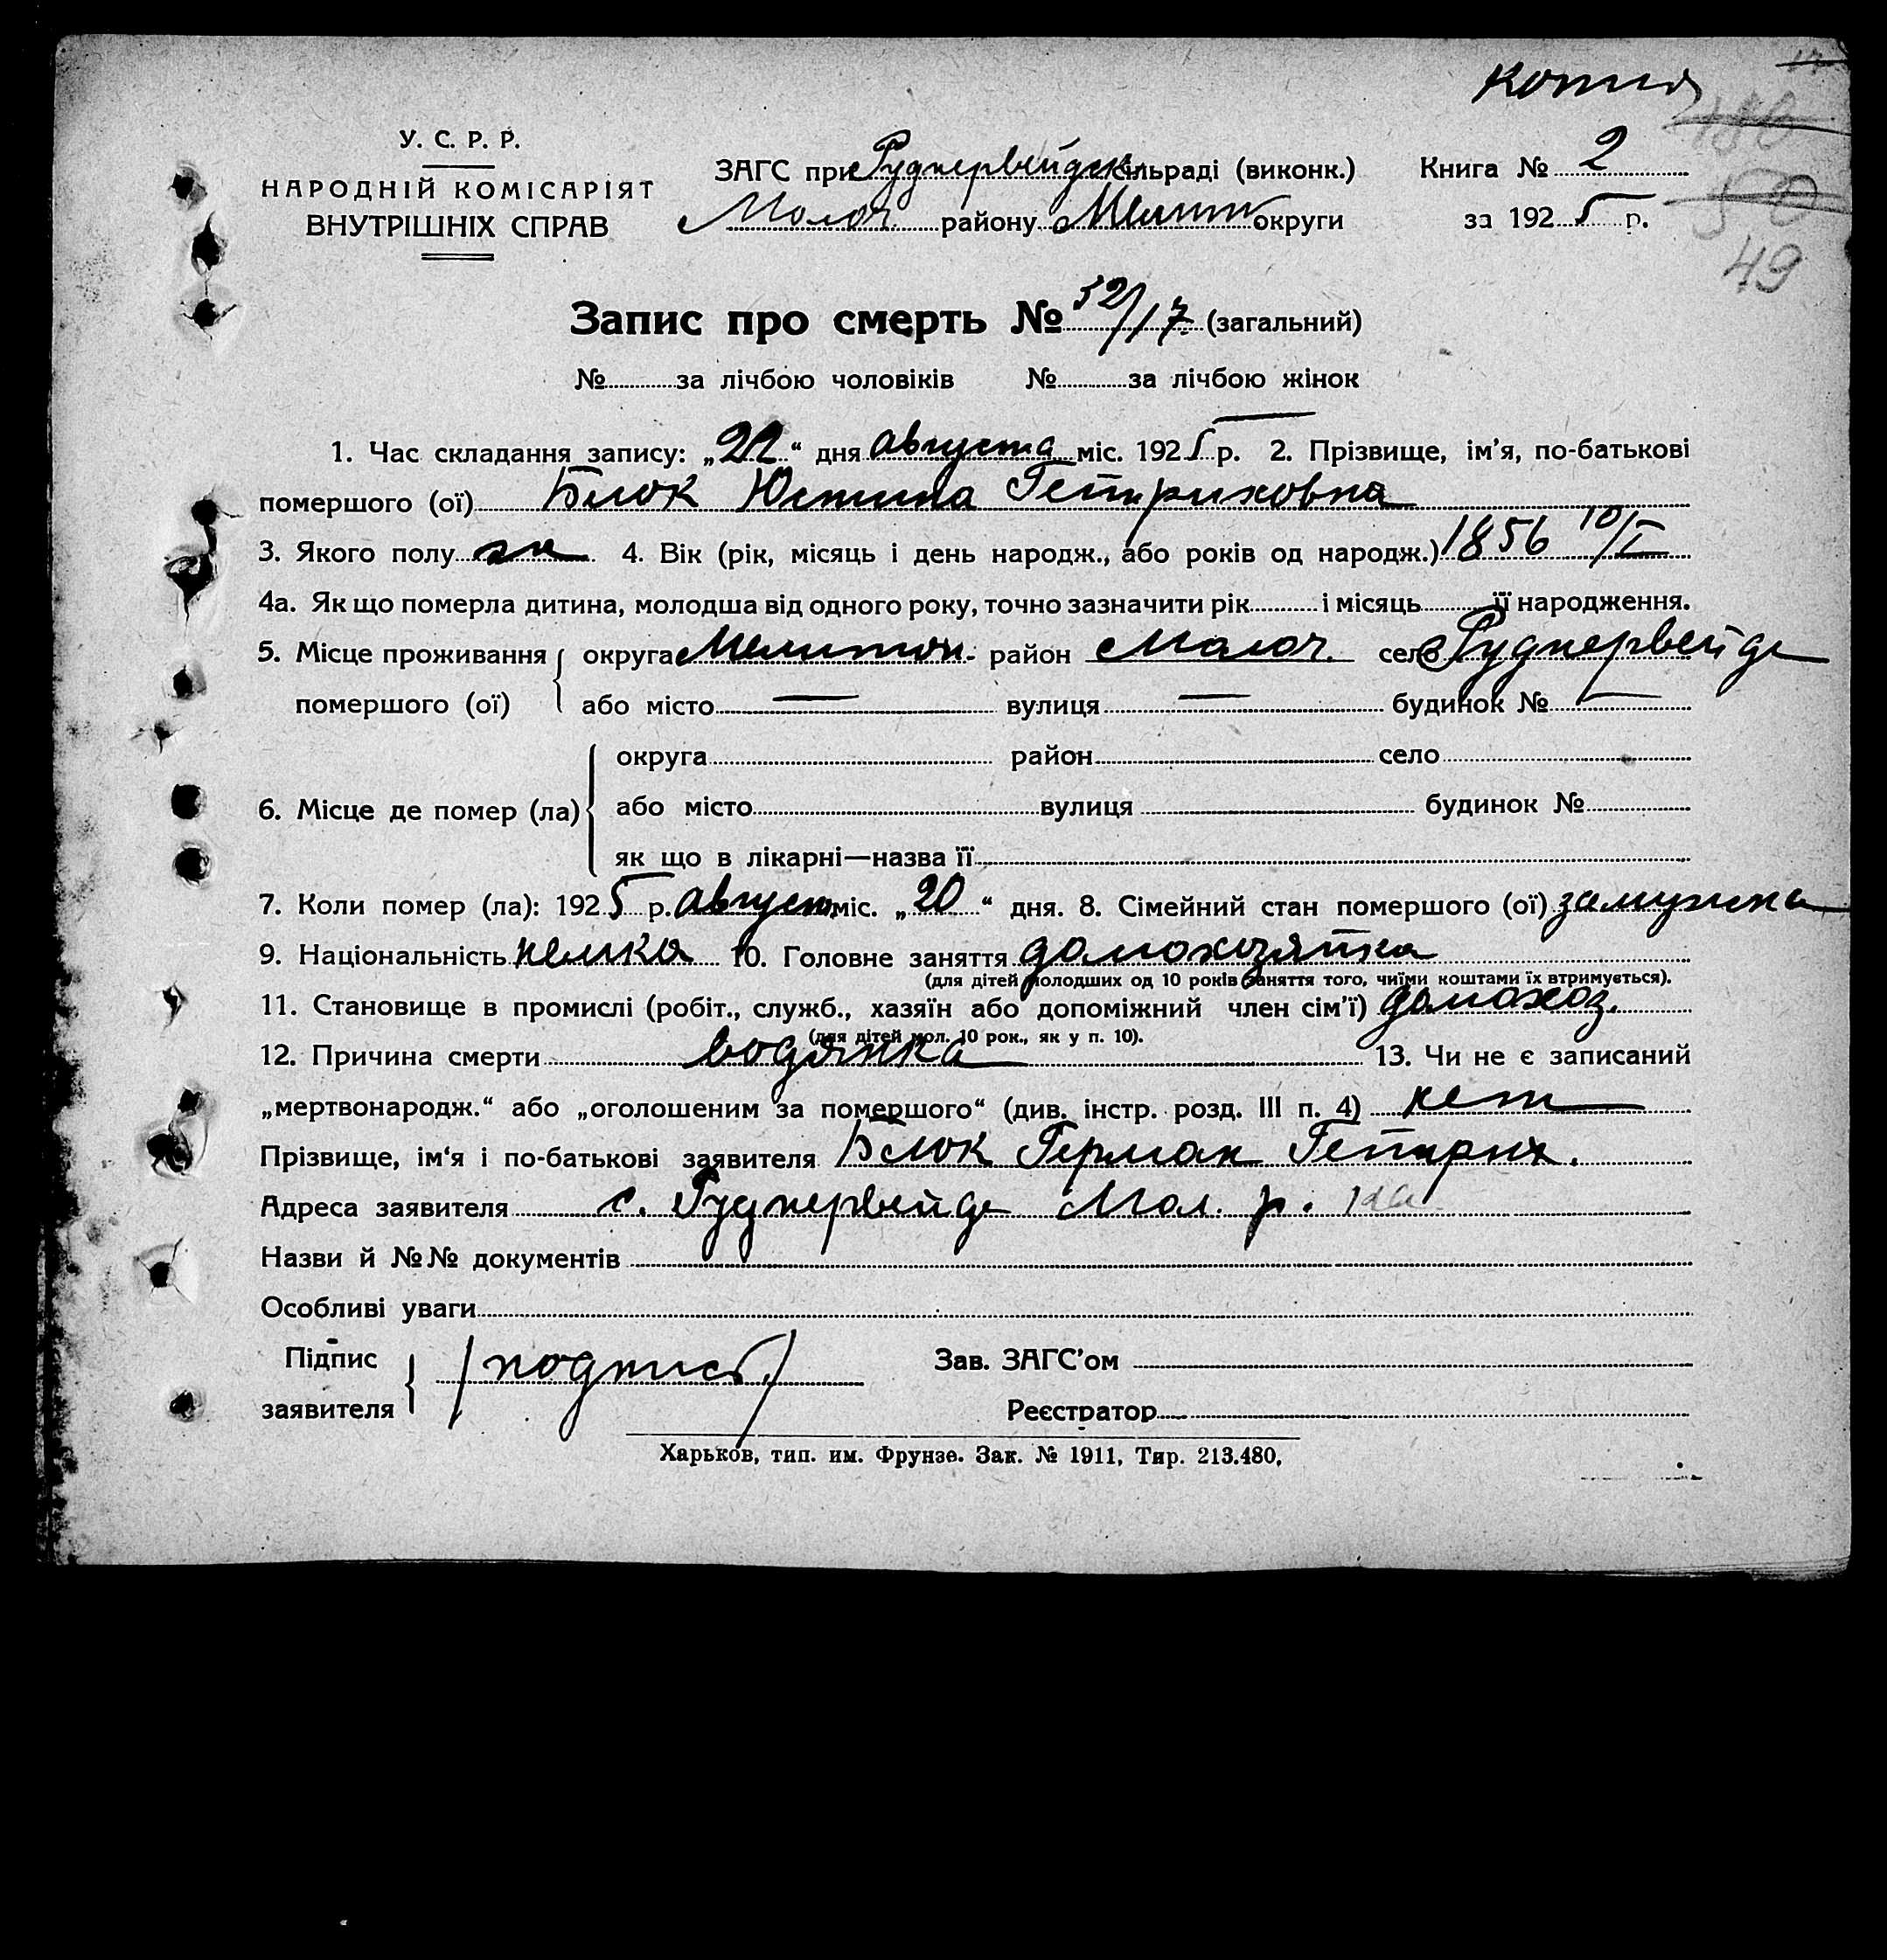 копия
У. С. Р. Р.
НАРОДНІЙ КОМІСАРІЯТ
ВНУТРІШНІХ СПРАВ
ЗАГС при Руднервейдск сільраді (виконк.) Книга № 2
Молоч. району Мелит округи за 1925 р.
180
50
49
Запис про смерть № 52/17. (загальний)
№ за лічбою чоловіків № за лічбою жінок
1. Час складання запису: „22“ дня августа міс. 1925 р. 2. Прізвище, ім'я, по-батькові
помершого (ої) Блок Юстина Гейнриховна
3. Якого полу ж 4. Вік (рік, місяць і день народж., або років од народж.) 1856 10/I
4а. Як що померла дитина, молодша від одного року, точно зазначити рік і місяць її народження.
5. Місце проживання округа Мелитоп. район Молоч. село Руднервейде
помершого (ої) або місто — вулиця — будинок № —
округа район село
6. Місце де помер (ла) або місто вулиця будинок №
як що в лікарні—назва її
7. Коли помер (ла): 1925 р. август міс. „20“ дня. 8. Сімейний стан помершого (ої) замужна
9. Національність немка 10. Головне заняття домохозяйка
(для дітей молодших од 10 років заняття того, чиїми коштами їх втримується).
11. Становище в промислі (робіт., служб., хазяїн або допоміжний член сім'ї) домохоз.
(для дітей мол. 10 рок., як у п. 10).
12. Причина смерти водянка 13. Чи не є записаний
„мертвонародж.“ або „оголошеним за помершого“ (див. інстр. розд. III п. 4) нет
Прізвище, ім'я і по-батькові заявителя Блок Герман Гейнрих.
Адреса заявителя с. Руднервейде Мол. р.
Назви й №№ документів
Особливі уваги
Підпис /подпись/ Зав. ЗАГС'ом
заявителя Реєстратор
Харьков, тип. им. Фрунзе. Зак. № 1911, Тир. 213.480,